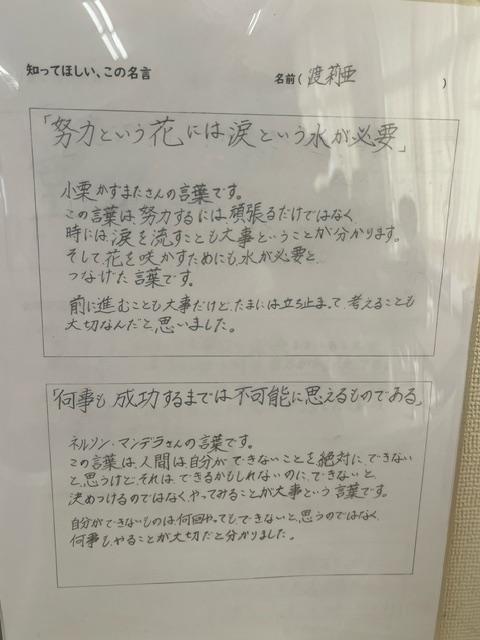 知ってほしい、この名言
名前(渡 莉亜)
「努力という花には涙という水が必要」
小栗かずまたさんの言葉です。
この言葉は、努力するには、頑張るだけではなく
時には、涙を流すことも大事ということが分かります。
そして、花を咲かすためにも、水が必要と、
つなげた言葉です。
前に進むことも大事だけど、たまには立ち止まって、考えることも
大切なんだと、思いました。
「何事も成功するまでは不可能に思えるものである」
ネルソン・マンデラさんの言葉です。
この言葉は、人間は自分ができないことを絶対に、できない
と、思うけど、それは、できるかもしれないのに、できないと、
決めつけるのではなくやってみることが大事という言葉です。
自分ができないものは、何回やってもできないと、思うのではなく、
何事も、やることが大切だと分かりました。